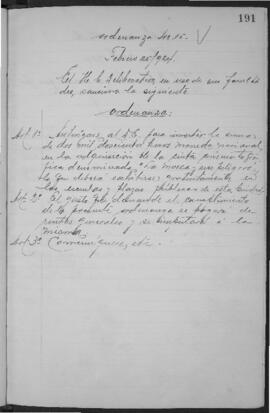 191
ordenanza No 15.
Febrero 25/924.
El H. C. Deliberativo, en uso de sus faculta
des, sanciona la siguiente
ordenanza:
Art. 1º Autorízase al D.E. para invertir la suma
de dos mil doscientos pesos moneda nacional
en la adquisición de la cinta cinematográ
fica denominada la mosca y sus peligros,
la que deberá exhibirse gratuitamente en
las escuelas y plazas públicas de esta Ciudad.
Art. 2º El gasto que demande el cumplimiento
de la presente ordenanza se hará de
rentas generales y se imputará a la
misma.
Art. 3º Comuníquese, etc.